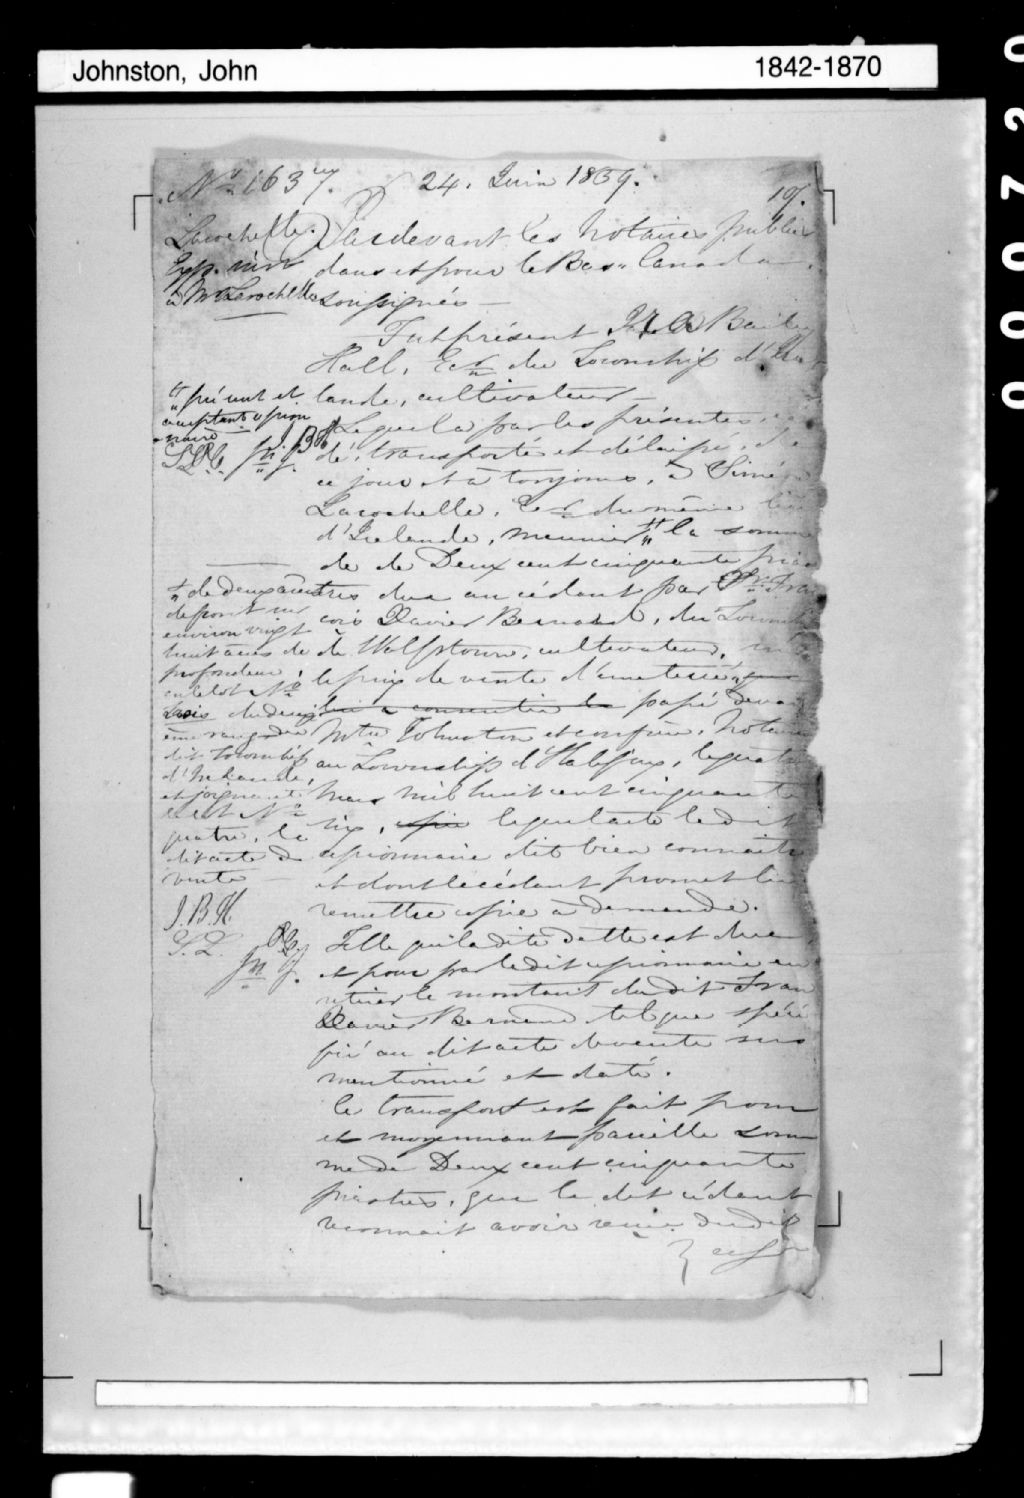 Johnston, John
1842-1870
00072
No. 1637.
24. Juin 1859.
Larochelle.
Exp. livr
à Mr Larochelle
Pardevant les Notaires publics
dans et pour le Bas-Canada
soussignés —
Fut présent Bailey
Hall, Ecr du Township d'Ir-
lande, cultivateur —
Lequel a par les présentes,
dé, transporté et délaissé, dè
ce jour et à toujours, à Siméo
Larochelle, Ecr du même lieu
d'Irelande, meunier, la somme
de de Deux cent cinquante pias
tres due au cédant par Fran
cois Xavier Bernard, du Townsh
de Wolfstown, cultivateur,
le prix de vente d'une terre,
lui a consentie le passé devan
Mtre Johnston et confrère, Notaire
au Township d'Halifax, le quatre
Mars mil huit cent cinquante
six, lequel acte le dit
cessionnaire dit bien connaitre
et dont le cédant promet lui
remettre copie à demande.
Telle que la dite dette est due
et pour par le dit cessionnaire en
retirer le montant du dit Fran
Xavier Bernard tel que spéci
fié au dit acte de vente sus
mentionné et daté.
Ce transport est fait pour
et moyennant pareille som
me de Deux cent cinquante
piastres, que le dit cédant
reconnait avoir reçue du dit
présent et
acceptant cession
naire
J.B.H.
S.L.
de deux acres
de front sur
environ vingt
huit acres de
profondeur,
du dixi
ème rang du
dit township
d'Irelande,
et joignant
le lot No
quatre, le
dit acte de
vente —
J.B.H.
S.L.